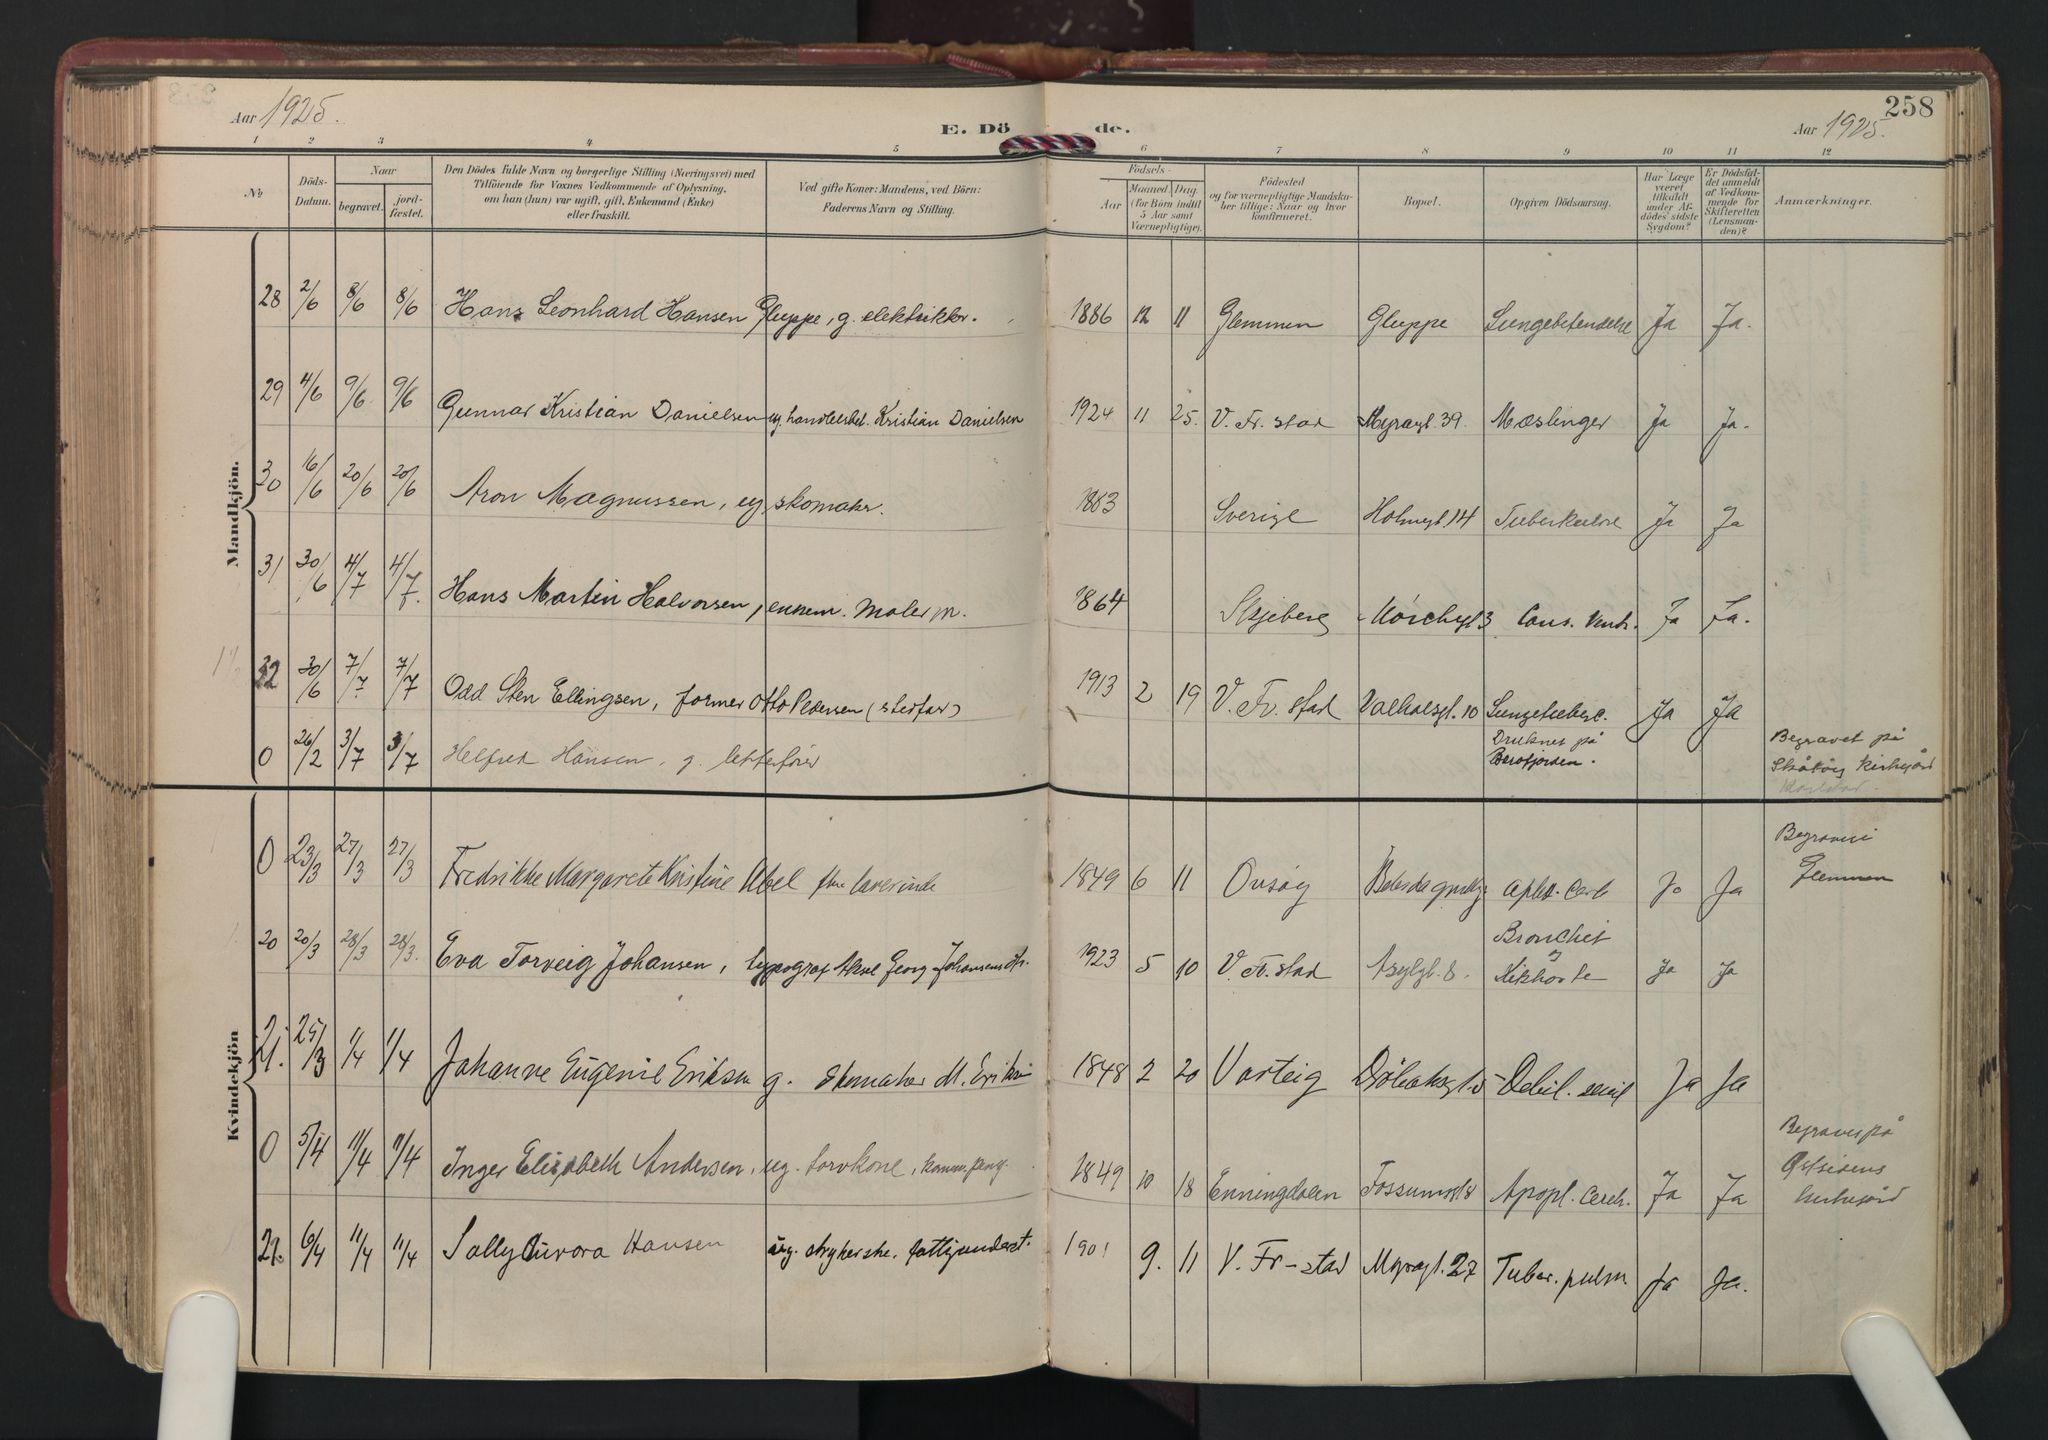 258
Aar 1925.
E. Döde.
Aar 1925.
1 2 3 4 5 6 7 8 9 10 11 12
No
Döds-Datum.
Naar
begravet.
jord-fæstet.
Den Dödes fulde Navn og borgerlige Stilling (Næringsvei) med
Tilföiende for Voxnes Vedkommende af Oplysning,
om han (hun) var ugift, gift, Enkemand (Enke)
eller fraskilt.
Ved gifte Koner: Mandens, ved Börn:
Faderens Navn og Stilling.
Födsels-
Aar
Maaned Dag
(for Börn indtil
5 Aar samt
Værnepligtige).
Födested
og for værnepligtige Mandsku-
ber tillige: Naar og hvor
konfirmeret.
Bopæl.
Opgiven Dödsaarsag.
Har Læge
været
tilkaldt
under Af-
dödes sidste
Sygdom?
Er Dödsfal-
det anmeldt
af Vedkom-
mende for
Skifteretten
(Lensman-
den)?
Anmærkninger.
Mandkjön.
28 2/6 8/6 8/6 Hans Leonhard Hansen Gluppe, g. elektriker. 1886 12 11 Glemmen Gluppe Lungebetendelse Ja Ja.
29 4/6 9/6 9/6 Gunnar Kristian Danielsen handelsbet. Kristian Danielsen 1924 11 25. V. Fr. stad Myragt. 39. Mæslinger Ja Ja.
30 16/6 20/6 20/6 Aron Magnussen, ug. skomaker. 1883 Sverige Holmegt. 14 Tuberkulose Ja Ja
31 30/6 4/7 4/7. Hans Martin Halvorsen, enkem. maler m. 1864 Skjeberg 3 Ja Ja.
32 30/6 7/7 7/7 Odd Sten Ellingsen, former Otto Pedersen (stedfar) 1913 2 19 V. Fr. stad 10 Lungetuberc. Ja Ja
0 26/2 3/7 3/7 Helfred Hansen, g. letterfører Druknet på
Begravet på
Skåtøy kirkegård
Kvindekjön
0 23/3 27/3 27/3 Fredrikke Margarete Kristine Abel lærerinde 1849 6 11 Onsøy Ja Ja
Glemmen
20 20/3 28/3 28/3. Eva Torveig Johansen, typograf Aksel Georg Johansens 1923 5 10 V. Fr. stad Asylgt. 8. Bronchit
Kikhoste Ja Ja
21. 25/3 1/4 1/4 Johanne Eugenie Eriksen g. skomaker M. Eriksen 1848 2 20 Varteig Debil. senil Ja Ja
0 5/4 11/4 11/4 Inger Elisabeth Andersen, ug. torvkone, 1849 10 18 Enningdalen Apopl. Cereb. Ja Ja
Begravet på
Østsidens
kirkegård
22. 6/4 11/4 11/4 Sally Aurora Hansen ug. strykerske. fattigunderst. 1901 9. 11 V. Fr-stad Myragt. 27 Tuber. pulm. Ja Ja.